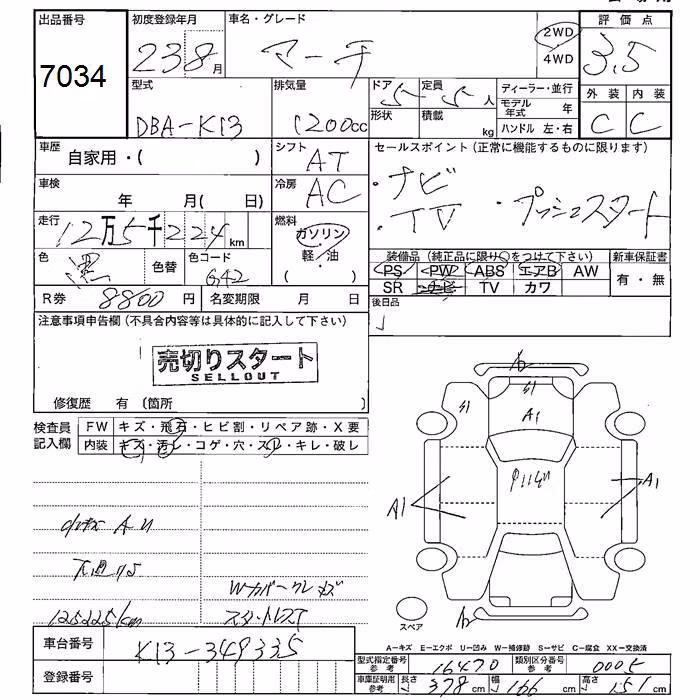 出品番号 初度登録年月 車名・グレード 評価点
7034 23 8月 マーチ 2WD 4WD 3.5
型式 排気量 ドア 5 定員 5人 ディーラー・並行 外装 内装
DBA-K13 1200cc 形状 積載 kg モデル年式 年 C C
ハンドル 左・右
車歴 自家用・( ) シフト AT セールスポイント (正常に機能するものに限ります)
車検 年 月( 日) 冷房 AC ・ナビ
・TV ・プッシュスタート
走行 12万5千224km 燃料 ガソリン 軽/油 ( )
色 黒 色替 色コード G42
装備品 (純正品に限り○をつけて下さい) 新車保証書
PS PW ABS エアB AW 有・無
SR TV カワ
R券 8800円 名変期限 月 日 後日品
注意事項申告欄 (不具合内容等は具体的に記入して下さい)
売切りスタート
SELLOUT
修復歴 有 (箇所 )
検査員記入欄 FW キズ・飛石・ヒビ割・リペア跡・X要
内装 キズ・汚レ・コゲ・穴・スレ・キレ・破レ
A1
A1 A1
125225km
スペア
A−キズ E−エクボ U−凹み W−補修跡 S−サビ C−腐食 XX−交換済
車台番号 K13-349335
登録番号
型式指定番号 参考 16470 類別区分番号 参考 0005
車庫証明用 参考 長さ 378cm 幅 166cm 高さ 151cm